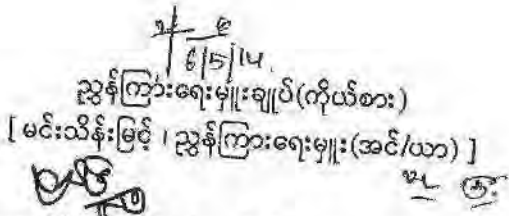 6/5/14
ညွှန်ကြားရေးမှူးချုပ်(ကိုယ်စား)
[ မင်းသိန်းမြင့် ၊ ညွှန်ကြားရေးမှူး(အင်/ယာ) ]